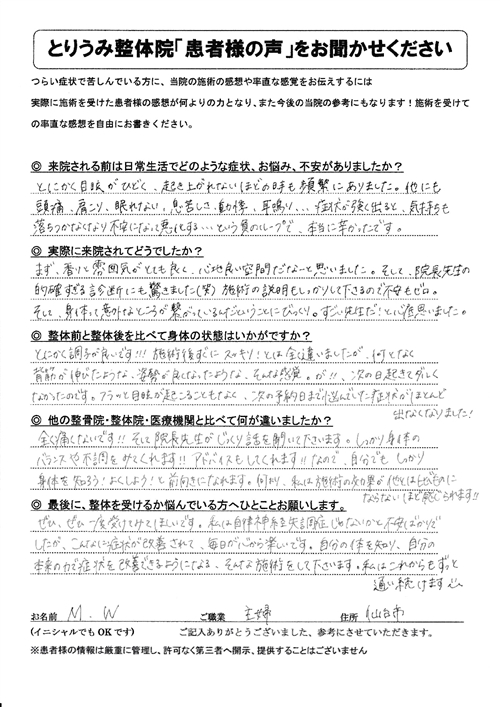 とりうみ整体院「患者様の声」をお聞かせください
つらい症状で苦しんでいる方に、当院の施術の感想や率直な感覚をお伝えするには
実際に施術を受けた患者様の感想が何よりの力となり、また今後の当院の参考にもなります！施術を受けて
の率直な感想を自由にお書きください。
◎ 来院される前は日常生活でどのような症状、お悩み、不安がありましたか？
とにかく目眩がひどく、起き上がれないほどの時も頻繁にありました。他にも
頭痛、肩こり、眠れない、息苦しさ、動悸、耳鳴り...症状が強く出ると、気持ちも
落ちつかなくなり不安になって悪化する...という負のループで、本当に辛かったです。
◎ 実際に来院されてどうでしたか？
まず、香りと雰囲気がとても良く、心地良い空間だな〜と思いました。そして、院長先生の
的確すぎる診断にも驚きました(笑) 施術の説明もしっかりして下さるので不安もゼロ。
そして、身体って意外なところが繋がっているんだということにびっくり。すごい先生だ！と思いました。
◎ 整体前と整体後を比べて身体の状態はいかがですか？
とにかく調子が良いです!!! 施術後すぐにスッキリ！とは全く違いましたが、何となく
背筋が伸びたような、姿勢が良くなったような、そんな感覚。が!!、次の日起きて
なかったのです。フラッと目眩が起こることもなく、次の予約日まで悩んでいた症状がほとんど
出なくなりました！
◎ 他の整骨院・整体院・医療機関と比べて何が違いましたか？
全く痛くないです!! そして院長先生がじっくり話を聞いて下さいます。しっかり身体の
バランスや不調をみてくれます!! アドバイスもしてくれます!! なので、自分でもしっかり
身体を知ろう！よくしよう！と前向きになれます。何より、私は施術の効果が他とは比べものに
ならないほど感じられます!!
◎ 最後に、整体を受けるか悩んでいる方へひとことお願いします。
ぜひ、ぜひ一度受けてみてほしいです。私は自律神経失調症じゃないかと不安ばかりで
したが、こんなに症状が改善されて、毎日が心から楽しいです。自分の体を知り、自分の
本来の力で症状を改善できるようになる、そんな施術をして下さいます。私はこれからもずっと
通い続けます
お名前 M.W ご職業 主婦 住所 仙台市
(イニシャルでもOKです) ご記入ありがとうございました、参考にさせていただきます。
※患者様の情報は厳重に管理し、許可なく第三者へ開示、提供することはございません